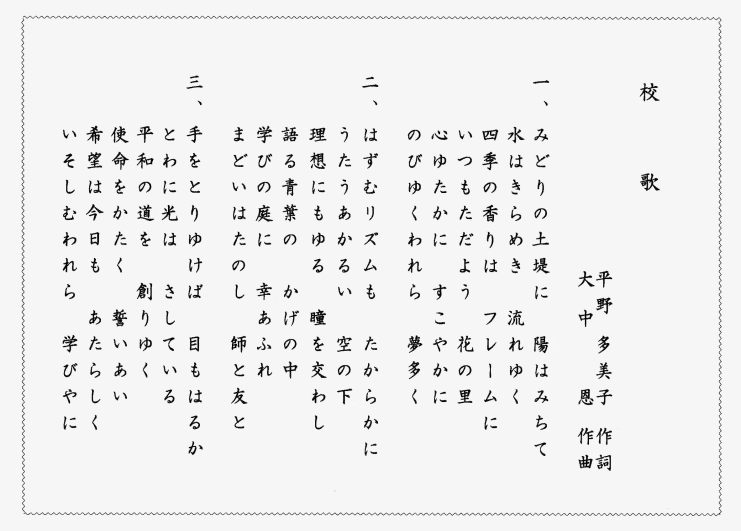 校　歌
平野　多美子　作詞
大中　　恩　作曲
一、みどりの土堤に　陽はみちて
水はきらめき　流れゆく
四季の香りは　フレームに
いつもただよう　花の里
心ゆたかに　すこやかに
のびゆくわれら　夢多く
二、はずむリズムも　たからかに
うたうあかるい　空の下
理想にもゆる　瞳を交わし
語る青葉の　かげの中
学びの庭に　幸あふれ
まどいはたのし　師と友と
三、手をとりゆけば　目もはるか
とわに光は　さしている
平和の道を　創りゆく
使命をかたく　誓いあい
希望は今日も　あたらしく
いそしむわれら　学びやに